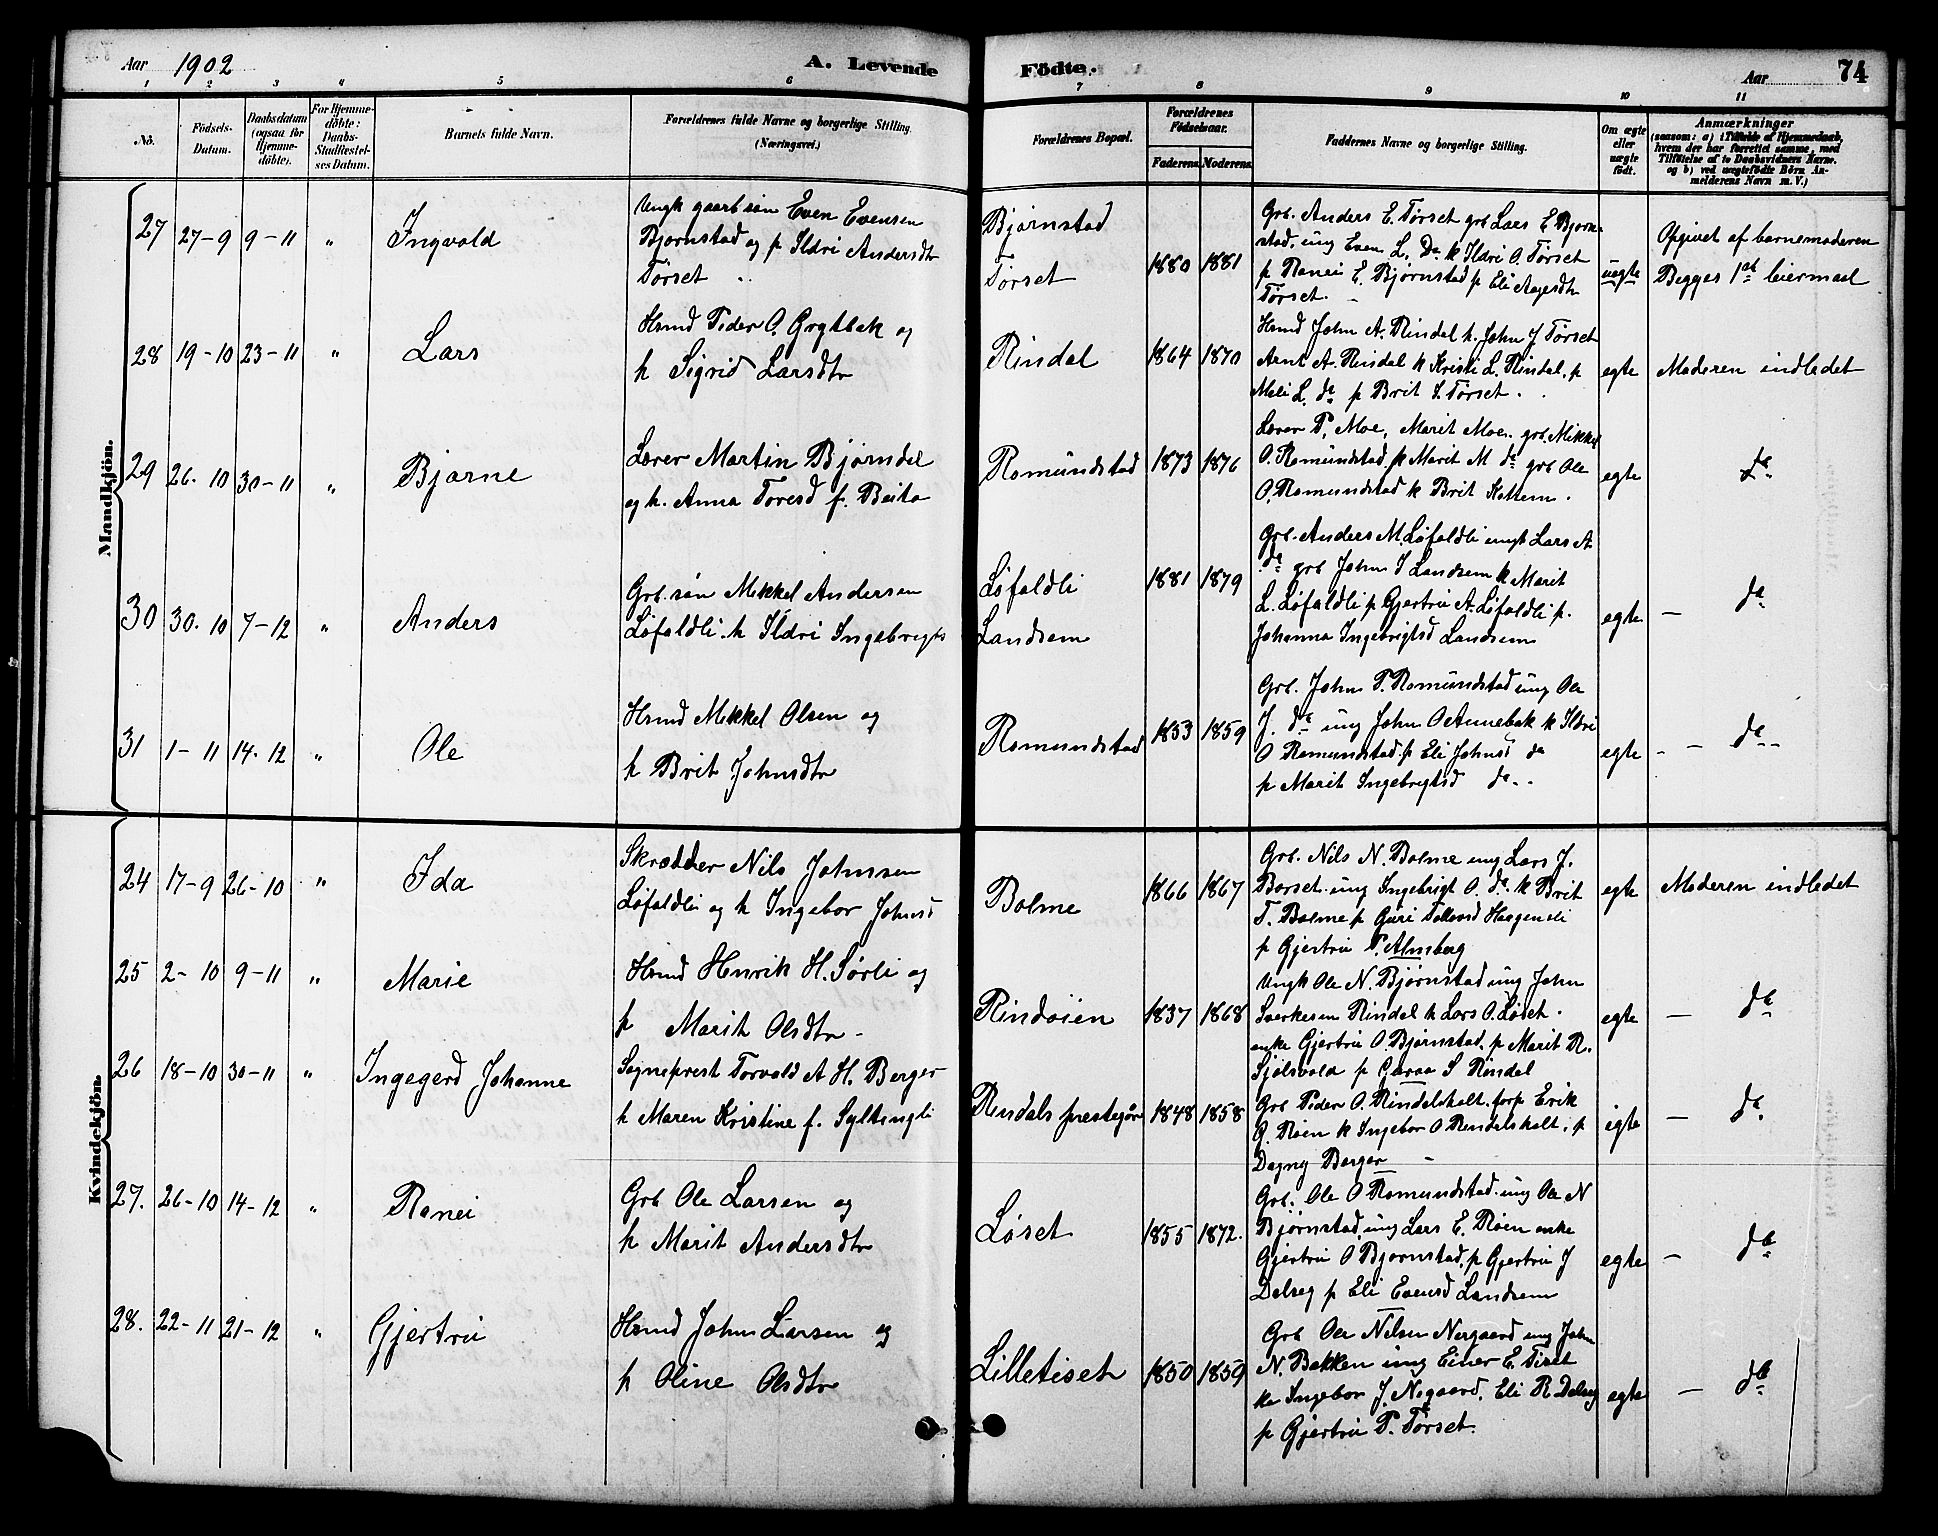 Aar 1902
A. Levende Födte.
Aar 74
1 2 3 4 5 6 7 8 9 10 11
No.
Födsels-Datum.
Daabsdatum (ogsaa for Hjemmedöbte).
For Hjemmedöbte: Daabs-Stadfæstelses Datum.
Barnets fulde Navn.
Forældrenes fulde Navne og borgerlige Stilling. (Næringsvei.)
Forældrenes Bopæl.
Forældrenes Födselsaar.
Faderens. Moderens.
Faddernes Navne og borgerlige Stilling.
Om ægte eller uægte födt.
Anmærkninger
(saasom: a) i Tilfælde af Hjemmedaab,
hvem der har forrettet samme, med
Tilföielse af to Daabsvidners Navne.
og b) ved uægtefödte Börn An-
melderens Navn m. V.)
Mandkjön.
27 27-9 9-11 " Ingvald
Ungk gaarb søn Even Evensen
Bjørnstad og p Ildri Andersdtr
Tørset
Bjørnstad
Tørset
1880 1881
Grb. Anders E. Tørset grb Lars E Bjørn-
stad, ung Even L. Do k Ildri O. Tørset
p Ranei E. Bjørnstad p Eli Aagesdtr
Tørset.
uegte
Opgivet af barnemoderen
Begges 1st leiermaal
28 19-10 23-11 " Lars
Hsmd Peder O. Grytbak og
h Sigrid Larsdtr
Rindal
1864 1870
Hsmd John A. Rindal h. John J Tørset
Arnt A. Rindal k Kristi L. Rindal, p
Meli L. do p Brit S. Tørset.
egte
Moderen indledet
29 26-10 30-11 " Bjarne
Lærer Martin Bjørndal
og h. Anna Toresd f. Beito
Romundstad
1873 1876
Lærer P. Moe, Marit Moe. grb. Mikkel
O. Romundstad, k Marit M do grb Ole
O. Romundstad k Brit Kattem.
egte
do
30 30-10 7-12 " Anders
Grb.søn Mikkel Andersen
Løfaldli h Ildri Ingebrigts
Løfaldli
Landsem
1881 1879
Grb. Anders M. Løfaldli ungk Lars A.
do grb John I Landsem k Marit
L. Løfaldli p Gjertru A. Løfaldli p.
Johanna Ingebrigtsd Landsem
egte
— do
31 1-11 14-12 " Ole
Hsmd Mikkel Olsen og
h Brit Johnsdtr
Romundstad
1853 1859
Grb. John T. Romundstad ung Ole
J. do ung John O Aunebak k Ildri
O Romundstad p Eli Johnsd do
p Marit Ingebrigtsd do
egte
— do
Kvindekjön.
24 17-9 26-10 " Ida
Skrædder Nils Johnsen
Løfaldli og h Ingebor Johnsd
Bolme
1866 1867
Grb. Nils N. Bolme ung Lars J.
Børset ung Ingebrigt O. do k Brit
T. Bolme p Guri Tollevsd Haugenli
p Gjertru P. Almberg
egte
Moderen indledet
25 2-10 9-11 " Marie
Hsmd Henrik H. Sørli og
h Marit Olsdtr
Rindøien
1837 1868
Ungk Ole N. Bjørnstad ung John
Sverkesen Rindal h Lars O. Løset.
enke Gjertru O. Bjørnstad. p Marit R.
Sjølsvold p Guraa S Rindal
egte
— do
26 18-10 30-11 " Ingegerd Johanne
Sogneprest Torvald A H. Berger
h Maren Kristine f. Syltingli
Rindals prestegår
1848 1858
Grb Peder O. Rindalsholt. forp Erik
G. Røen k Ingebor O Rindalsholt, p
Dagny Berger
egte
— do
27. 26-10 14-12 " Ranei
Grb Ole Larsen og
h Marit Andersdtr
Løset
1855 1872.
Grb. Ole O Romundstad. ung Ole N
Bjørnstad, ung Lars E. Røen enke
Gjertru O Bjørnstad, p Gjertru J
Dalseg p Eli Evensd Landsem
egte
— do
28. 22-11 21-12 " Gjertru
Hsmd John Larsen og
h Oline Olsdtr
Lilletiset
1850 1859
Grb Ole Nilsen Nergaard ung John
N. Bakken ung Einer E. Tiset
ke Ingebor J. Negaard, Eli R Dalseg
p Gjertru P. Tørset.
egte
— do